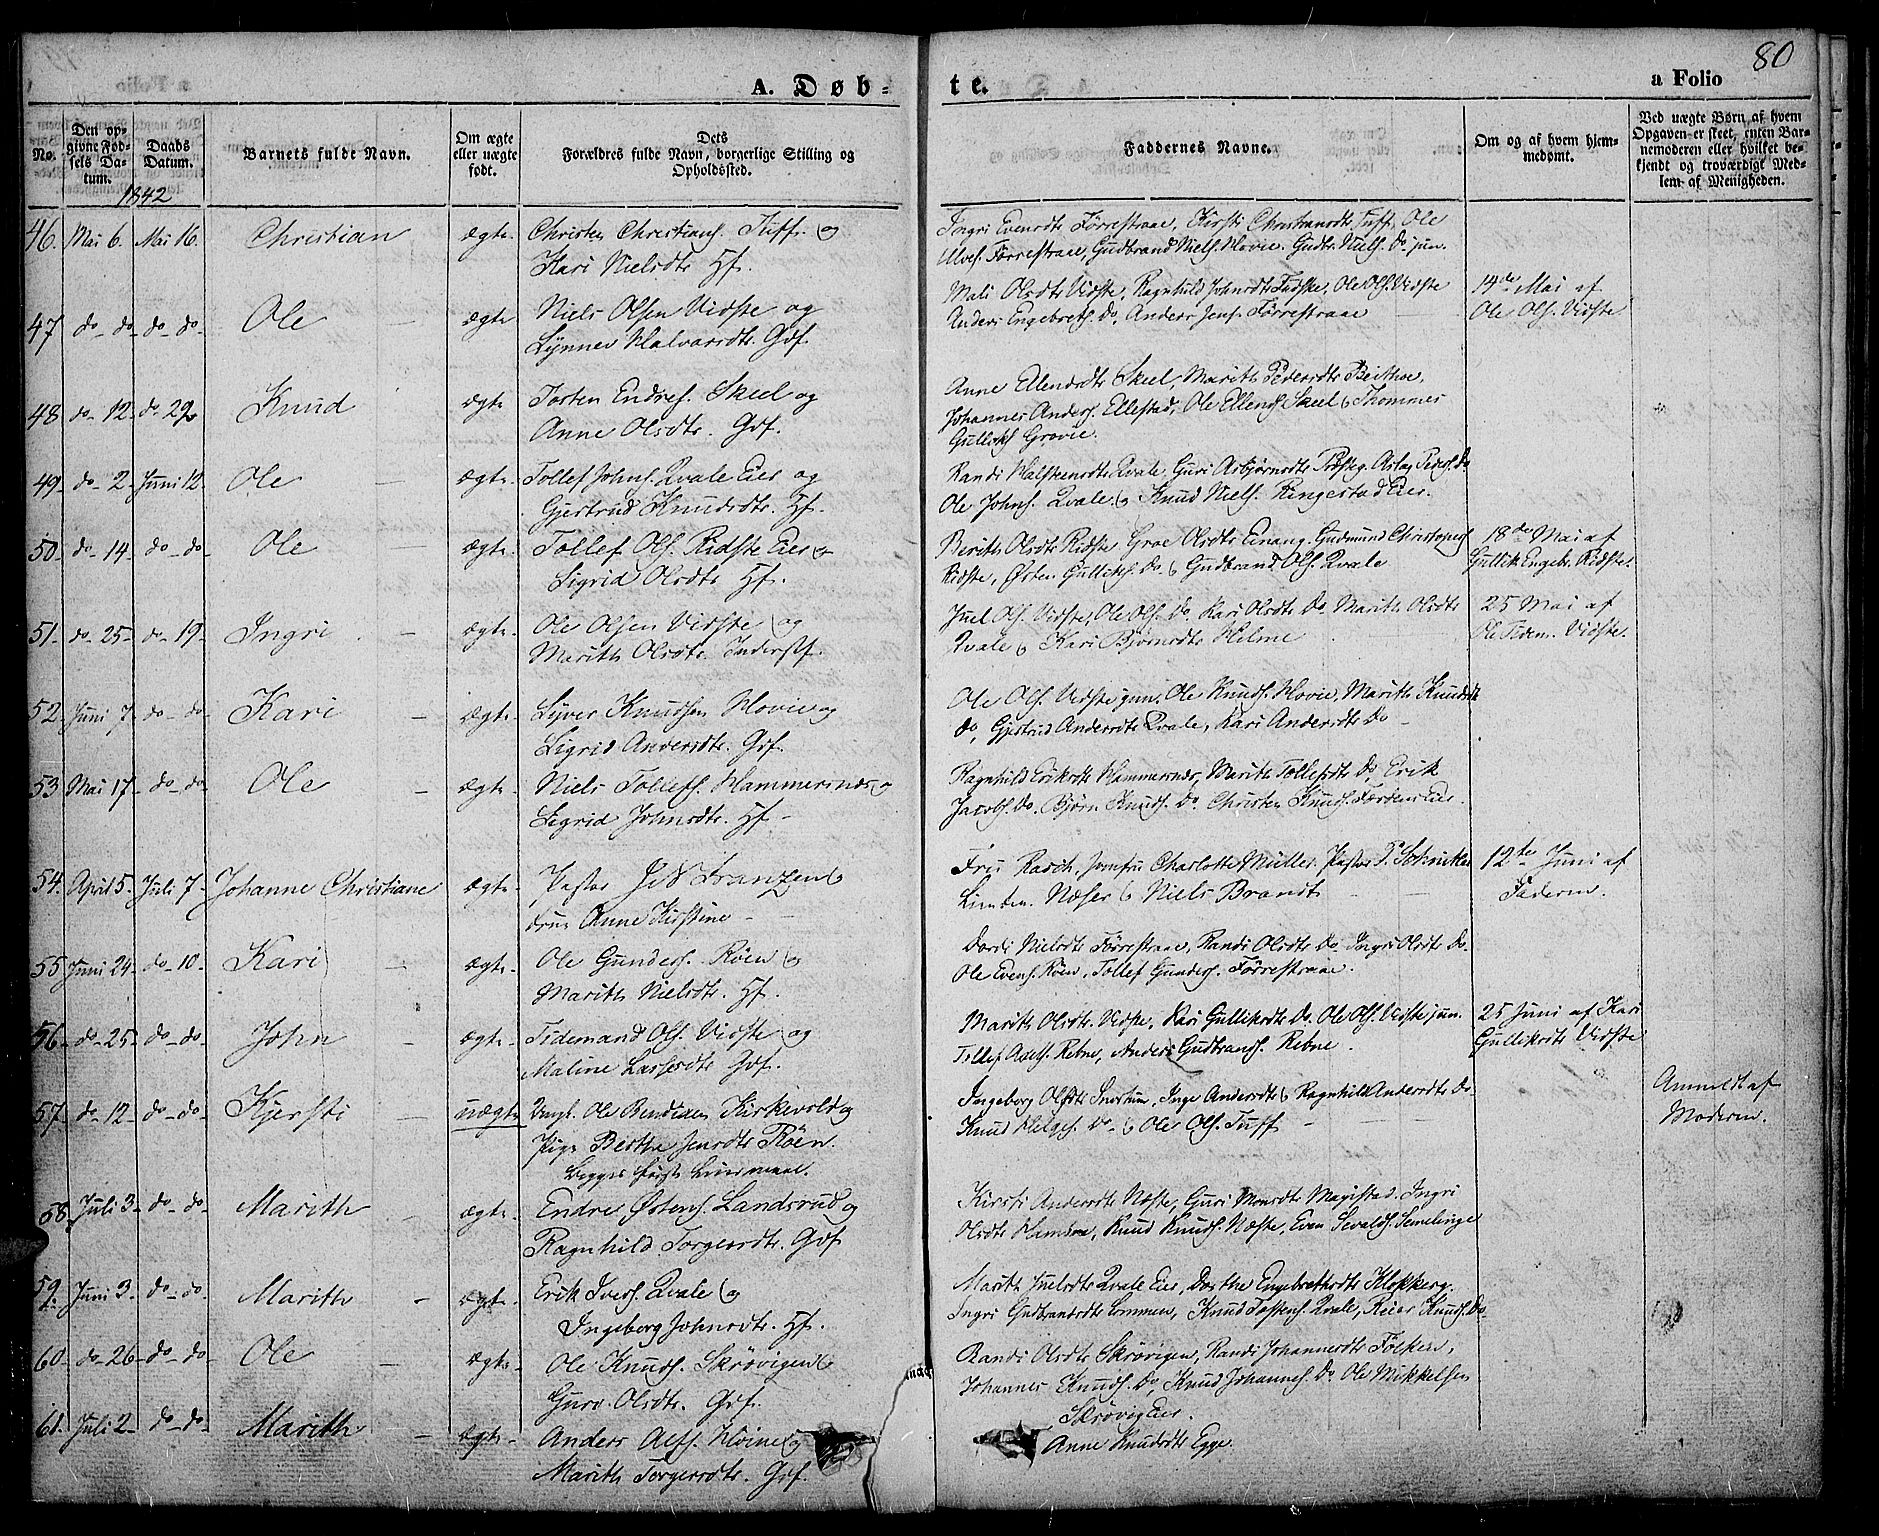 80
A. Døb-
te.
a Folio
No.
Den opgivne Fødsels Datum.
Daabs Datum.
Barnets fulde Navn.
Om ægte eller uægte født.
Dets Forældres fulde Navn, borgerlige Stilling og Opholdssted.
Faddernes Navne.
Om og af hvem hjemmedømt.
Ved uægte Børn af hvem Opgaven er skeet, enten Barnemoderen eller hvilket bekjendt og troværdigt Medlem af Menigheden.
1842
46. Mai 6. Mai 16. Christian ægte. Christen Christians. Tuff. og
Kari Nielsdtr. Hf.
Ingri Evensdtr Førrestraae, Kirsti Christiansdtr. Tuff, Ole
Ulves. Førrestraae, Gudbrand Niels. Hovie. Gudbr. Niels. Do jun.
47 do do do do Ole ægte Niels Olsen Vidste og
Lynnev Halvardtr. Gdf.
Mali Olsdtr Vidste, Ragnhild Johnsdtr Fadske, Ole Ols. Vidste
Anders Engebreths. Do, Anders Jens. Førrestraae
14de Mai af
Ole Ols. Vidste
48 do 12 do 29 Knud ægte Torsten Endres. Skeel og
Anne Olsdtr. Gdf.
Anne Ellendsdtr Skeel, Marith Pedersdtr Beithoe,
Johannes Anders. Ellestad, Ole Ellends. Skeel & Thommes
Gulliks Grovie.
49 do 2 Juni 12 Ole ægte. Tollef Johns. Qvale Eier og
Gjertrud Knudsdtr. Hf.
Randi Halstensdtr Qvale, Guri Asbjørnsdtr Præsteg. Aslag Peders. Do
Ole Johns. Qvale, & Knud Niels. Ringestad Eier.
50 do 14 do do Ole ægte. Tollef Ols. Ridste Eier &
Sigrid Olsdtr. Hf.
Berith Olsdtr Ridste, Groe Olsdtr Einang, Gudmund Christophers
Ridste, Østen Gulliks. Do & Gudbrand Ols. Qvale
18de Mai af
Gullik Engebr. Ridste.
51. do 25 do 19 Ingri ægte. Ole Olsen Vidste og
Marith Olsdtr. Inderstf.
Juel Ols. Vidste, Ole Ols. Do. Kari Olsdtr Do. Marith Olsdtr
Qvale & Kari Bjørnsdtr Helme
25 Mai af
Ole Tidem. Vidste.
52 Juni 7 do do Kari ægte. Lyver Knudsen Hovie og
Sigrid Andersdtr. Gdf.
Ole Ols. Vidste jun. Ole Knuds. Hovie, Marith Knudsdtr
Do, Gjertrud Andersdtr Qvale, Kari Andersdtr Do
53 Mai 17 do do Ole ægte. Niels Tollefs. Hammersnes &
Sigrid Johnsdtr. Hf
Ragnhild Eriksdtr Hammersnes, Marith Tollefsdtr Do, Erik
Jacobs. Do. Bjørn Knuds. Do. Christen Knuds. Førdens Eier.
54. April 5. Juli 7 Johanne Christiane ægte. Pastor Frantzen &
Fru Anne Kirstine
Fru Rasch, Jomfru Charlotte Müller, Pastor
Linden. Næser & Niels Brandt
12te Juni af
Faderen.
55 Juni 24 do 10 Kari ægte. Ole Gunders. Røen &
Marith Nielsdtr. Hf.
Dordi Nielsdtr Førrestraae, Randi Olsdtr Do. Ingri Olsdtr Do.
Ole Evens. Røen, Tollef Gunders. Førrestraae.
56 do 25 do do John ægte Tidemand Ols. Vidste og
Maline Lassesdtr Gdf.
Marith Olsdtr. Vidste, Kari Gulliksdtr Do. Ole Ols. Vidste jun.
Tollef Axels. Rebne, Anders Gudbrands. Rebne.
25 Juni af Kari
Gulliksdtr Vidste
57 do 12 do do Kjersti uægte Ungk. Ole Bendixen Kirkevold og
Pige Berthe Jensdtr Røen.
Begges første Leiermaal.
Ingeborg Olsdtr, Inge Andersdtr & Ragnhild Andersdtr Do.
Knud Helges. Do & Ole Ols. Tuff
Anmeldt af
Moderen.
58 Juli 3 do do Marith ægte. Endre Østens. Landsrud &
Ragnhild Torgersdtr. Gdf
Kirsti Andersdtr Næste, Guri Monsdtr Magistad, Ingri
Olsdtr Hambre, Knud Knuds. Næste, Even Sevalds. Semelinge
59 Juni 3 do do Marith ægte. Erik Ivers. Qvale &
Ingeborg Johnsdtr. Hf.
Marith Juelsdtr Qvale Eier, Dorthe Engebrethsdtr Klokkerg.
Ingri Gudbrandsdtr Lommen, Knud Tostens. Qvale, Reier Knuds. Do
60 do 26 do do Ole ægte Ole Knuds. Skrøvigen &
Guro Olsdtr. Gdf.
Randi Olsdtr Skrøvigen, Randi Johannesdtr Folken,
Johannes Knuds. Do, Knud Johannes. Do Ole Mikkelsen
Skrøvig Eier.
61. Juli 2 do do Marith ægte Anders Hovine &
Marith Torgersdtr. Gdf.
Anne Knudsdtr Egge.